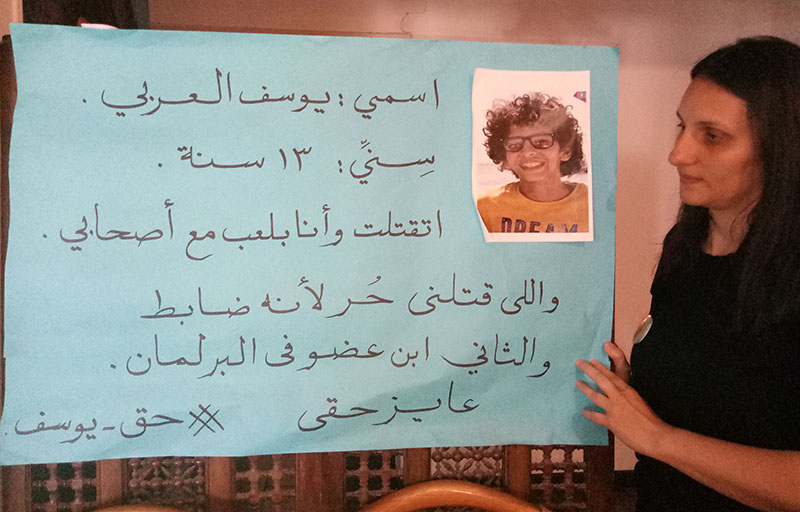 اسمي : يوسف العربي .
سِنيِّ : ١٣ سنة .
اتقتلت وأنا بلعب مع أصحابي .
واللى قتلنى حُر لأنه ضابط
والثاني ابن عضو فى البرلمان .
عايز حقى
#حق-يوسف.
DREAM